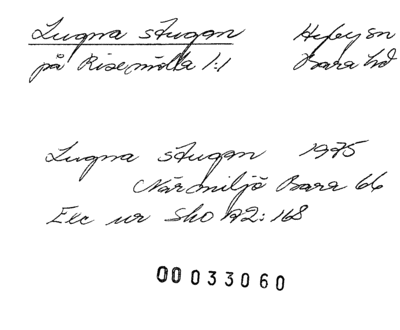 Lugna stugan Hyby sn
på Risemölla 1:1 Bara hd
Lugna stugan 1975
Närmiljö Bara 66
Exc ur Sho 72:168
00033060